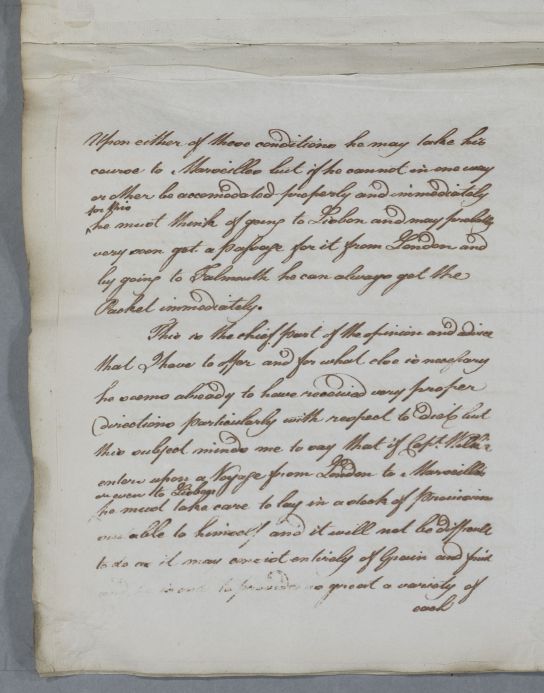 Upon either of these conditions he may take his
course to Marseilles but if he cannot in one way
or other be accomodated properly and immediately
for this
he must think of going to Lisbon and may probably
very soon get a passage for it from London and
by going to Falmouth he can always get the
Packet immediately.
This is the chief part of the opinion and advice
that I have to offer and for what else is necessary
he seems already to have received very proper
directions particularly with respect to diet but
this subject minds me to say that if Capt.
enters upon a Voyage from London to Marseilles
or even to Lisbon
he must take care to lay in a stock of provisions
suitable to himself and it will not be difficult
to do as it may consist entirely of Grain and fruit
and to provide so great a variety of
each